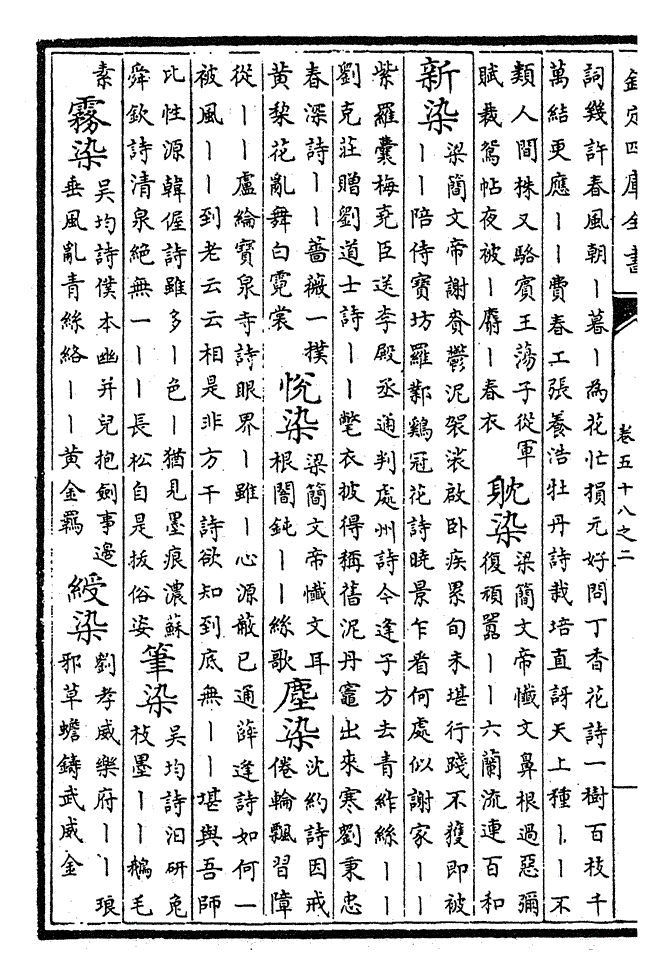 欽定四庫全書
卷五十八之二
詞幾許春風朝丨暮丨為花忙損元好問丁香花詩一樹百枝千
萬結更應丨丨費春工張養浩牡丹詩栽培直訝天上種丨丨不
類人間株又駱賓王蕩子從軍
賦裁鴛帖夜被丨麝丨春衣
耽染
梁簡文帝懺文鼻根過惡彌
復頑嚚丨丨六蘭流連百和
新染
梁簡文帝謝賚鬱泥袈裟啟卧疾累旬未堪行踐不獲即被
丨丨陪侍寶坊羅鄴鷄冠花詩曉景乍看何處似謝家丨丨
紫羅囊梅堯臣送李殿丞通判處州詩今逢子方去青絁絲丨丨
劉克莊贈劉道士詩丨丨氅衣披得稱舊泥丹竈出來寒劉秉忠
春深詩丨丨薔薇一撲
黄黎花亂舞白霓裳
悅染
梁簡文帝懺文耳
根闇鈍丨丨絲歌
塵染
沈約詩因戒
倦輪飄習障
從丨丨盧綸寶泉寺詩眼界丨雖丨心源蔽已通薛逢詩如何一
被風丨丨到老云云相是非方干詩欲知到底無丨丨堪與吾師
比性源韓偓詩雖多丨色丨猶見墨痕濃蘇
舜欽詩清泉絕無一丨丨長松自是拔俗姿
筆染
吳均詩汨研兔
枝墨丨丨鵝毛
素
霧染
吳均詩僕本幽并兒抱劍事邊
垂風亂青絲絡丨丨黄金羈
綬染
劉孝威樂府丨丨琅
邪草蟾鑄武威金